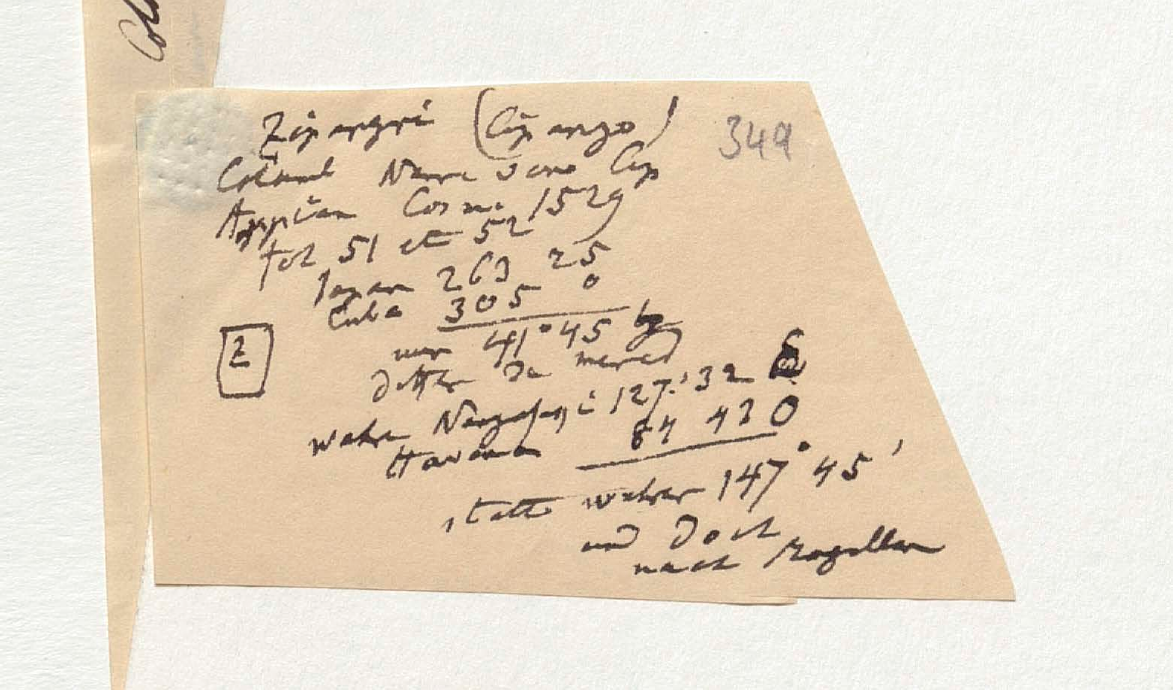 Col
Zipangri (Cipango)
349
Colomb Nunc Cip
Appian Cosm. 1529
fol 51 et 52
Japan 263 25
Cuba 305 0
nur 41° 45 bey
Ditter De merid
wahr Nangasaqi 127.° 32 E
Havana 84 43 O
statt wahrer 147° 45'
und doch
nach Magellan